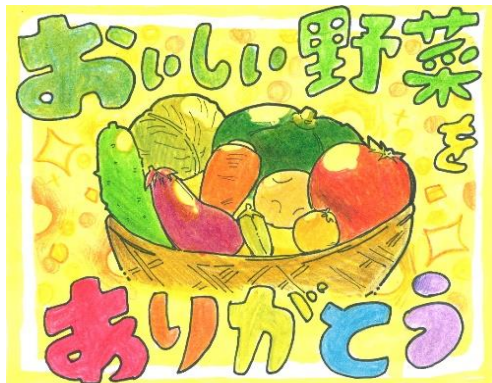 おいしい野菜を
ありがとう